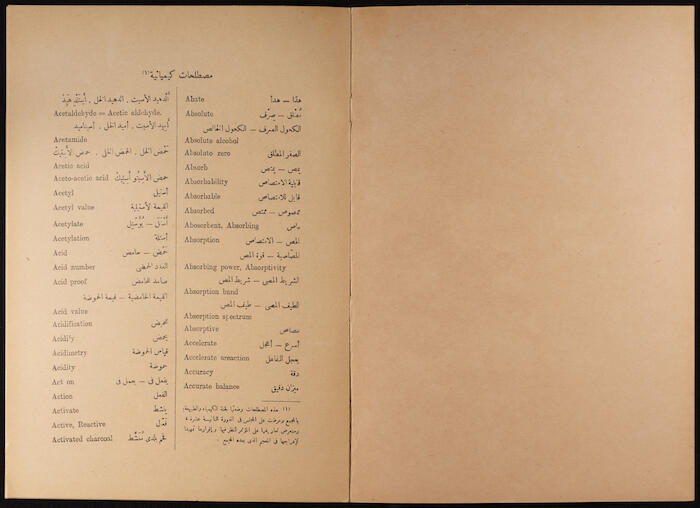 مصطلحات كيميائية (١)
Abate هدّأ — هدأ
Absolute مُطْلَق — صِرْف
الكحول الصرف — الكحول الخالص
Absolute alcohol
Absolute zero الصفر المطلق
Absorb يمص — يمتص
Absorbability قابلية الامتصاص
Absorbable قابل للامتصاص
Absorbed ممصوص — ممتص
Abosorbent, Absorbing ماص
Absorption المص — الامتصاص
المصّاصية — قوة المص
Absorbing power, Absorptivity
الشريط المصى — شريط المص
Absorption band
الطيف المصى — طيف المص
Absorption spectrum
Absorptive مصاص
Accelerate أسرع — أعجل
Accelerate areaction يعجل التفاعل
Accuracy دقة
Accurate balance ميزان دقيق
(١) هذه المصطلحات وضعتها لجنة الكيمياء والطبيعة
بالمجمع وعرضت على المجلس فى الدورة
على المؤتمر للنظر فيها وإقرارها تمهيدا
لإدراجها فى المعجم الذى يعده المجمع .
ألدهيد الأسيت . الدهيد الخل .
Acetaldehyde = Acetic aldehyde.
أميد الأسيت . أميد الخل . أسيتاميد
Acetamide
حَمْض الخل . الحمض الخلى . حمض الأسيتيك
Acetic acid
Aceto-acetic acid حمض الأسيتو أسيتيك
Acetyl أستيل
Acetyl value القيمة الأستيلية
Acetylate أَسْتَلَ — يُؤَسْتِل
Acetylation أستلة
Acid حَمْض — حامض
Acid number العدد الحمضى
Acid proof صامد للحامض
القيمة الحامضية — قيمة الحموضة
Acid value
Acidification تحميض
Acidify يحمض
Acidimetry قياس الحموضة
Acidity حموضة
Act on يفعل فى — يعمل فى
Action الفعل
Activate ينشط
Active, Reactive فَعّال
Activated charcoal فحم بلدى مُنَشَّط